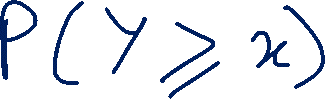 P(Y ⩾ x)